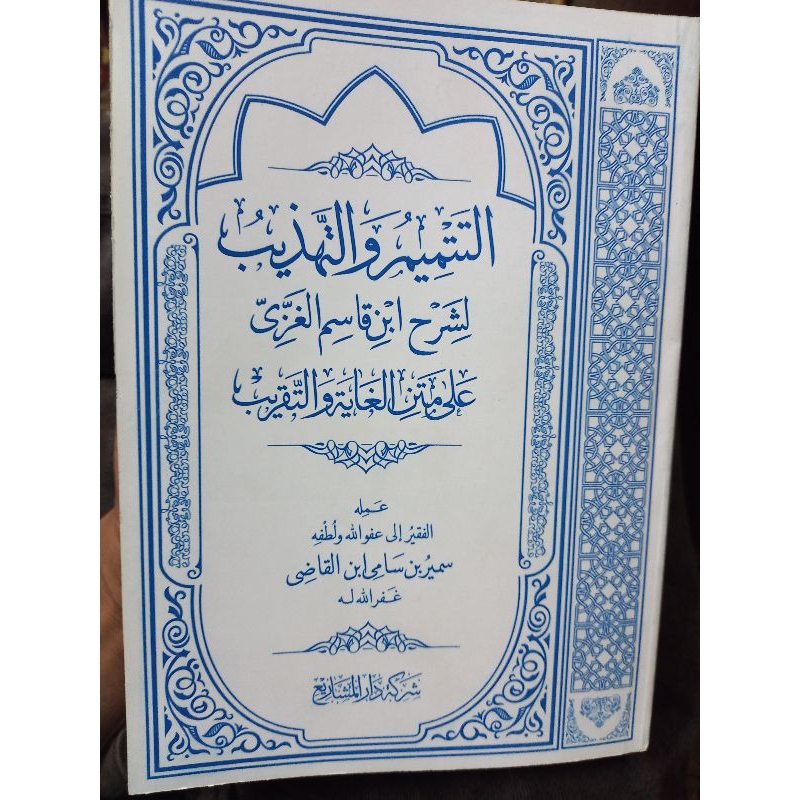 التَّتْمِيمُ وَالتَّهْذِيبُ
لِشَرْحِ ابْنِ قَاسِمِ الغَزِّيّ
عَلَى مَتْنِ الغَايَةِ وَالتَّقْرِيبْ
عَمِلَه
الفقيرُ إلى عفوِ الله ولُطْفِه
سمير بن سامي ابن القاضي
غفر الله له
شركة دار المشاريع